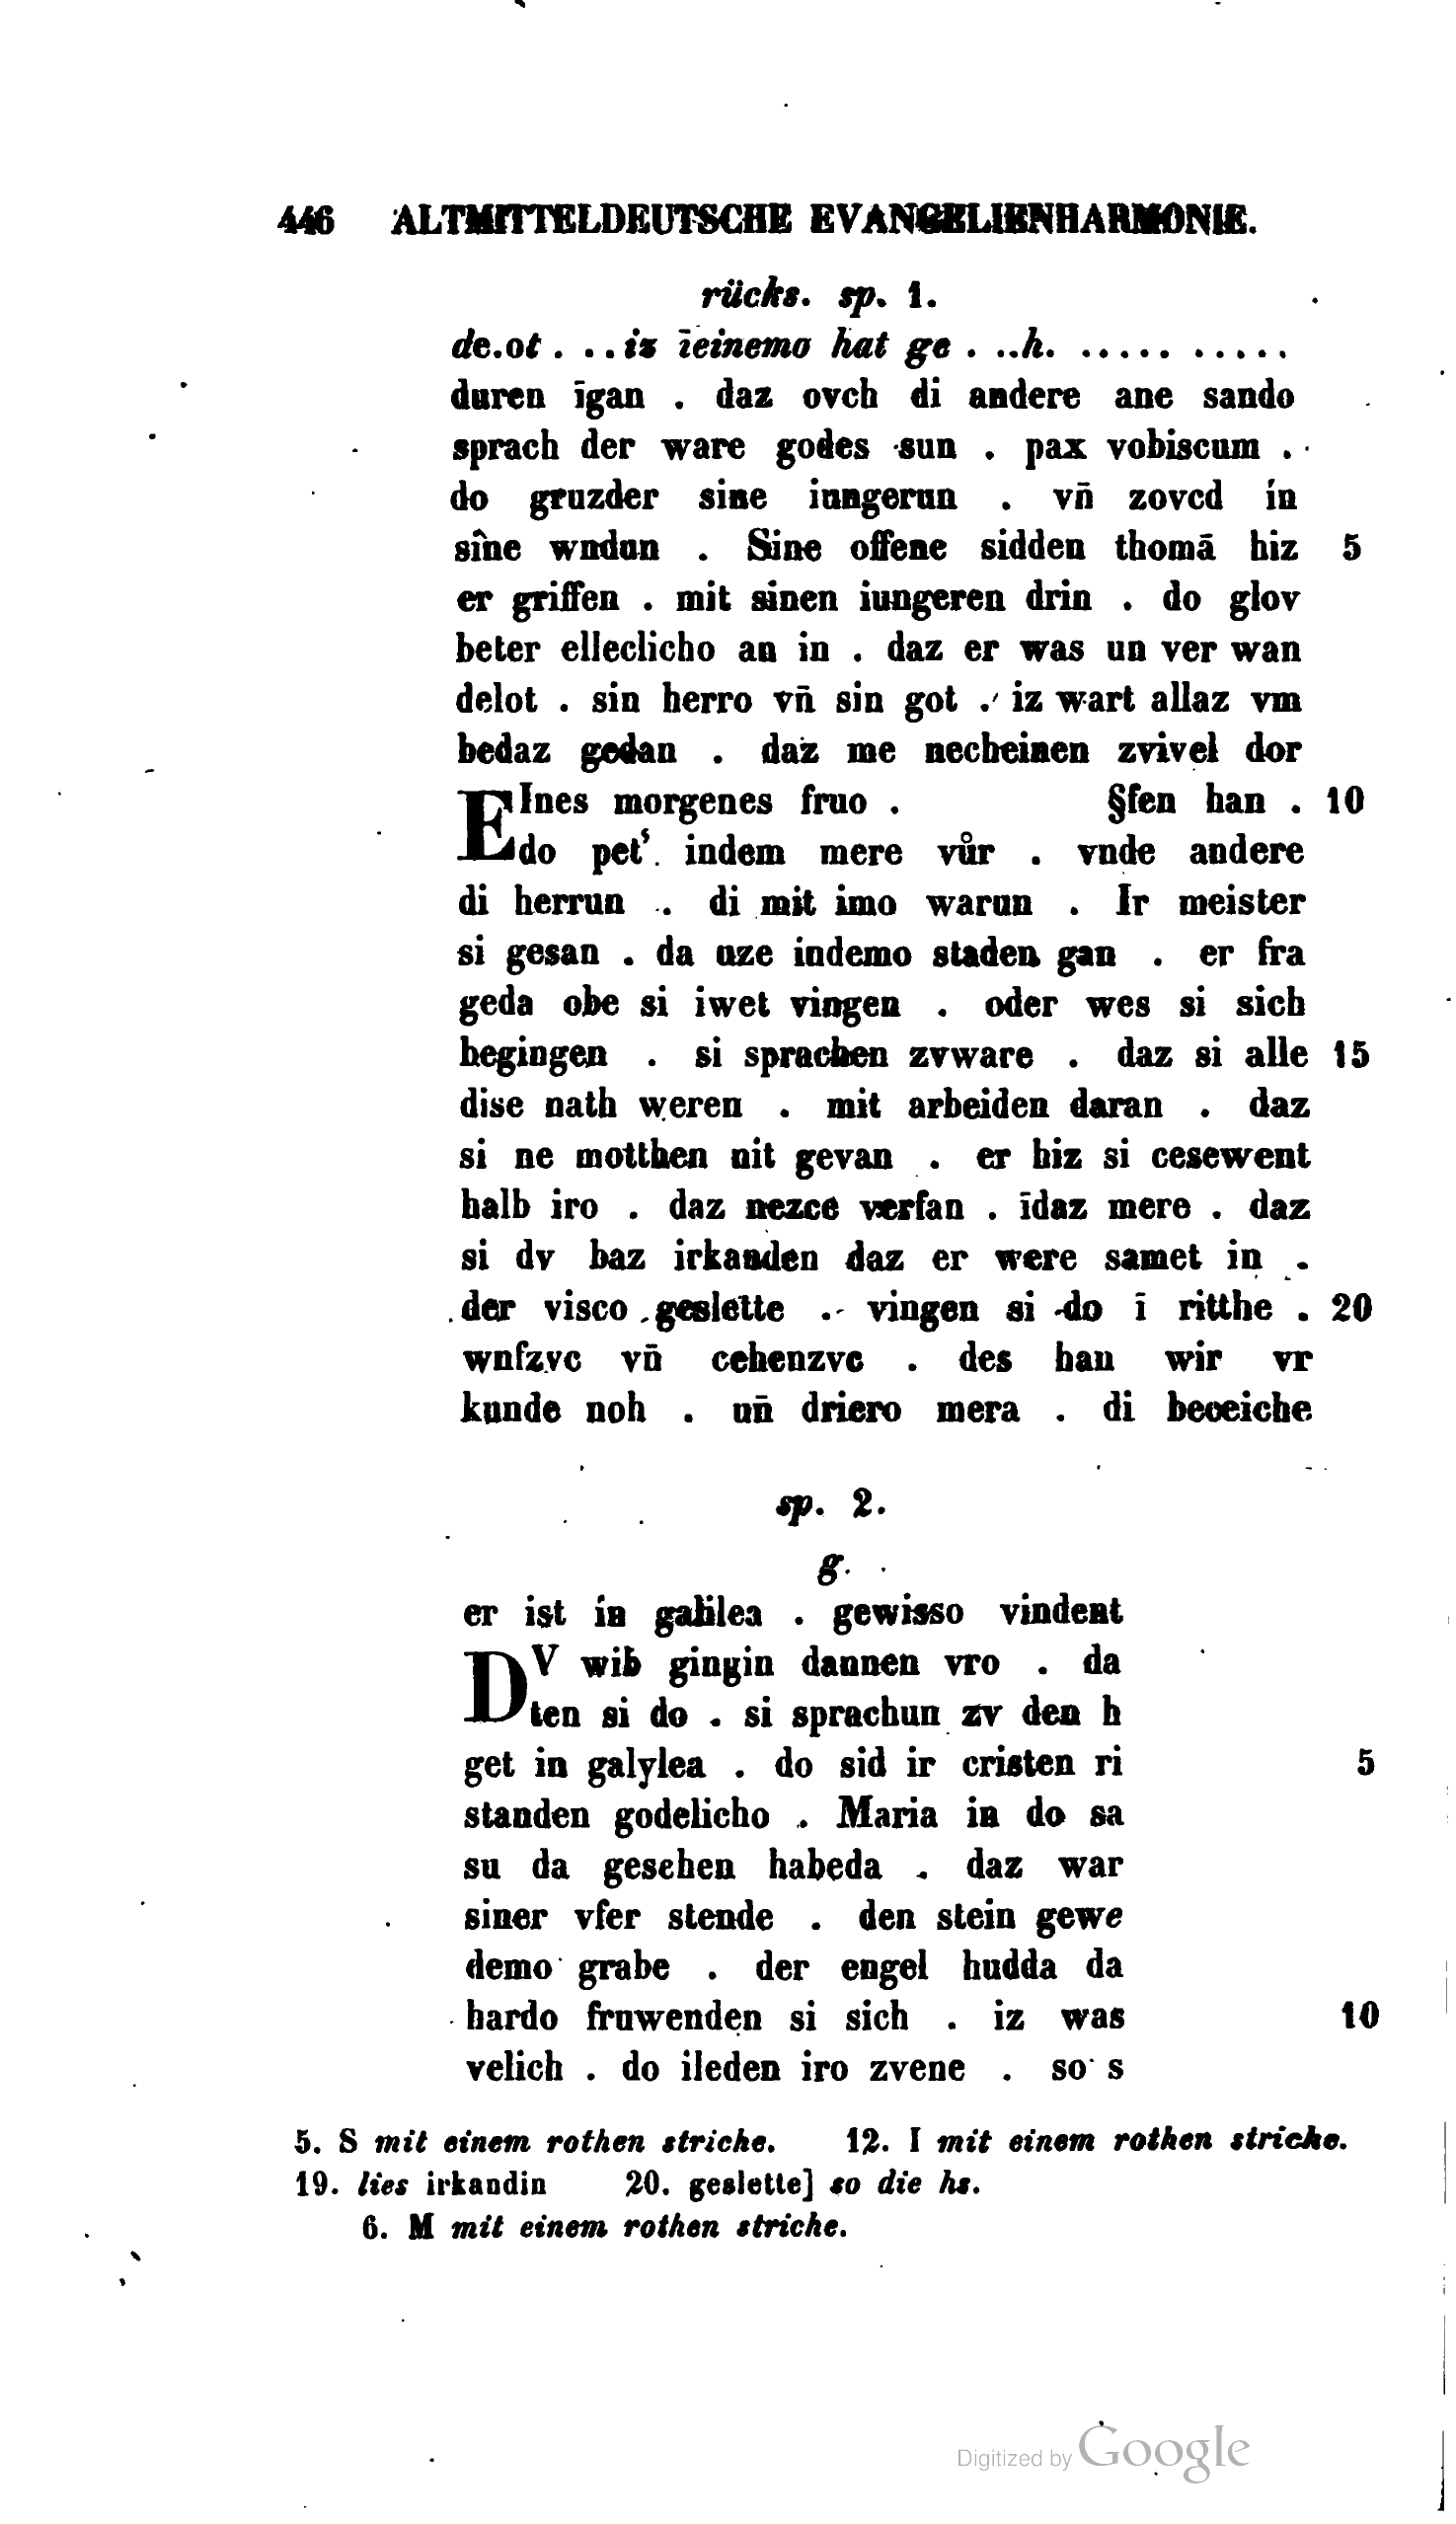 446 ALTMITTELDEUTSCHE EVANGELIENHARMONIE.
rücks. sp. 1.
de.ot . . . iz īeinemo hat ge . ..h. ..... .....
duren īgan . daz ovch di andere ane sando
sprach der ware godes sun . pax vobiscum .
do gruzder sine iungerun . vn̄ zovcd ín
sîne wndun . Sine offene sidden thomā hiz 5
er griffen . mit sinen iungeren drin . do glov
beter elleclicho an in . daz er was un ver wan
delot . sin herro vn̄ sin got . iz wart allaz vm
bedaz gedan . daz me necheinen zvivel dor
EInes morgenes fruo . §fen han . 10
do petˢ. indem mere vůr . vnde andere
di herrun . di mit imo warun . Ir meister
si gesan . da uze indemo staden gan . er fra
geda obe si iwet vingen . oder wes si sich
begingen . si sprachen zvware . daz si alle 15
dise nath weren . mit arbeiden daran . daz
si ne motthen nit gevan . er hiz si cesewent
halb iro . daz nezce verfan . īdaz mere . daz
si dv baz irkanden daz er were samet in .
der visco geslette . vingen si do ī ritthe . 20
wnfzvc vn̄ cehenzvc . des han wir vr
kunde noh . un̄ driero mera . di beceiche
sp. 2.
g.
er ist ín galilea . gewisso vindent
DV wib gingin dannen vro . da
ten si do . si sprachun zv den h
get in galylea . do sid ir cristen ri 5
standen godelicho . Maria in do sa
su da gesehen habeda . daz war
siner vfer stende . den stein gewe
demo grabe . der engel hudda da
hardo fruwenden si sich . iz was 10
velich . do ileden iro zvene . so s
5. S mit einem rothen striche. 12. I mit einem rothen striche.
19. lies irkandin 20. geslette] so die hs.
6. M mit einem rothen striche.
Digitized by Google